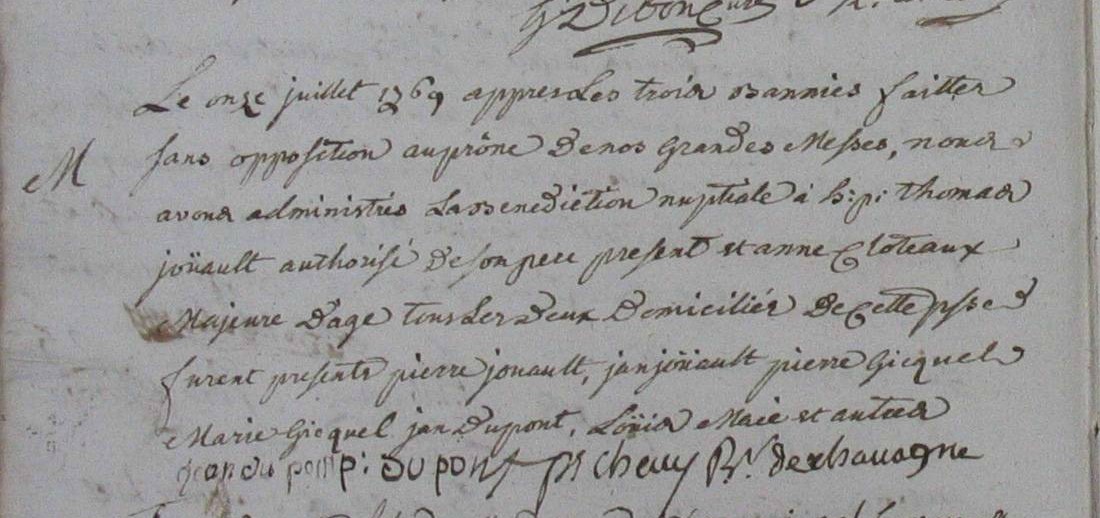 Le onze juillet 1769 appres les trois bannies faittes
M
sans opposition au prône de nos grandes Messes, nous
avons administrés La benediction nuptiale à h: p: thomas
joüault authorisé de son pere present et anne Cloteaux
Majeure d'age tous Les deux domiciliés de Cette psse
furent presents pierre jouault, jan joüault pierre Gicquel
Marie Gicquel jan Dupont, Loüis Macé et autres
jean du pont p: du pont Rr de chavagne